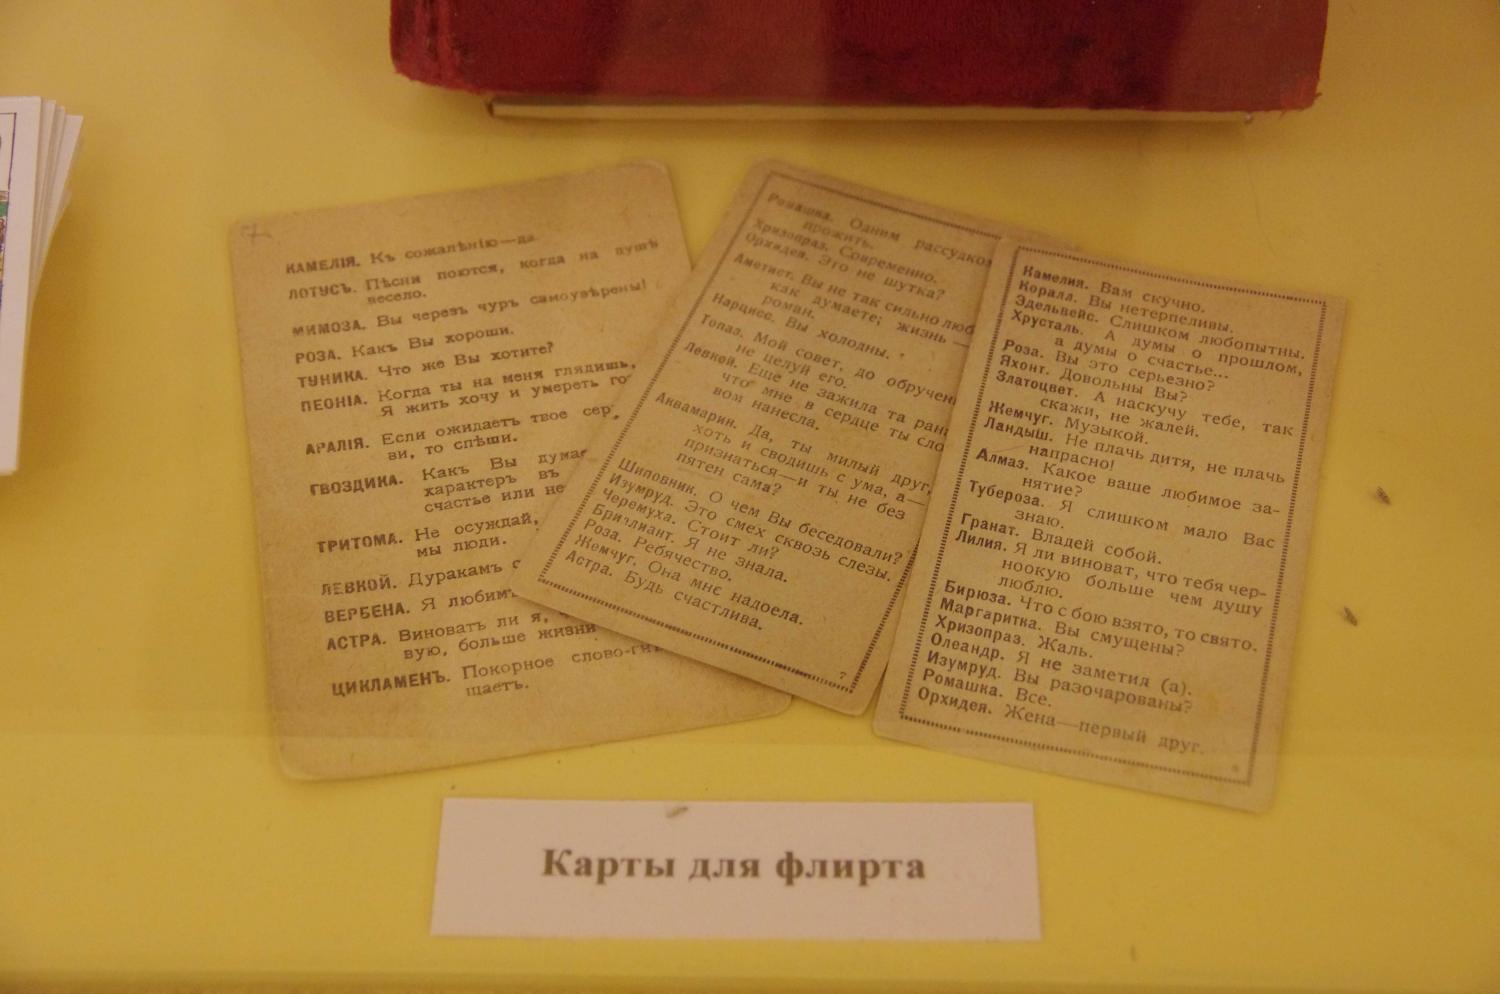 КАМЕЛІЯ. Къ сожалѣнію—да.
ЛОТУСЪ. Пѣсни поются, когда на душѣ
весело.
МИМОЗА. Вы черезъ чуръ самоувѣрены!
РОЗА. Какъ Вы хороши.
ТУНИКА. Что же Вы хотите?
ПЕОНІА. Когда ты на меня глядишь,
Я жить хочу и умереть
АРАЛІЯ. Если ожидаетъ твое
ви, то спѣши.
ГВОЗДИКА. Какъ Вы
характеръ въ
счастье или не
ТРИТОМА. Не осуждай,
мы люди.
ЛЕВКОЙ. Дуракамъ
ВЕРБЕНА. Я
АСТРА. Виноватъ ли я,
вую, больше жизни
ЦИКЛАМЕНЪ. Покорное
щаетъ.
Ромашка. Одним рассудком
прожить.
Хризопраз. Современно.
Орхидея. Это не шутка?
Аметист. Вы не так сильно
как думаете; жизнь —
роман.
Нарцисс. Вы холодны.
Топаз. Мой совет, до
не целуй его.
Левкой. Еще не зажила та
что мне в сердце ты
вом нанесла.
Аквамарин. Да, ты милый друг,
хоть и сводишь с ума, а—
признаться—и ты не без
пятен сама?
Шиповник. О чем Вы беседовали?
Изумруд. Это смех сквозь слезы.
Черемуха. Стоит ли?
Бриллиант. Я не знала.
Роза. Ребячество.
Жемчуг. Она мне надоела.
Астра. Будь счастлива.
7
Камелия. Вам скучно.
Коралл. Вы нетерпеливы.
Эдельвейс. Слишком любопытны.
Хрусталь. А думы о прошлом,
а думы о счастье...
Роза. Вы это серьезно?
Яхонт. Довольны Вы?
Златоцвет. А наскучу тебе, так
скажи, не жалей.
Жемчуг. Музыкой.
Ландыш. Не плачь дитя, не плачь
напрасно!
Алмаз. Какое ваше любимое за-
нятие?
Тубероза. Я слишком мало Вас
знаю.
Гранат. Владей собой.
Лилия. Я ли виноват, что тебя чер-
ноокую больше чем душу
люблю.
Бирюза. Что с бою взято, то свято.
Маргаритка. Вы смущены?
Хризопраз. Жаль.
Олеандр. Я не заметил (а).
Изумруд. Вы разочарованы?
Ромашка. Все.
Орхидея. Жена—первый друг.
Карты для флирта